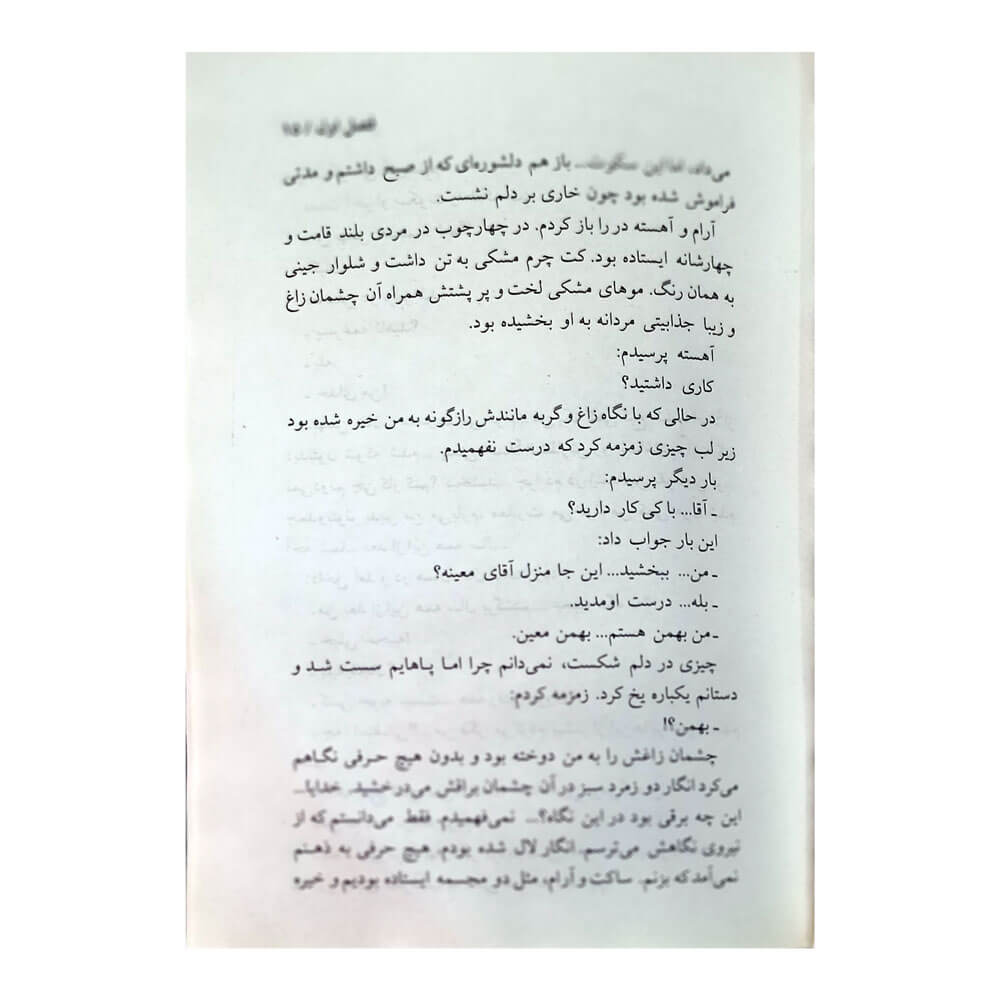 فصل اول / ۱۵
می‌داد، اما این سکوت... باز هم دلشوره‌ای که از صبح داشتم و مدتی
فراموش شده بود چون خاری بر دلم نشست.
آرام و آهسته در را باز کردم. در چهارچوب در مردی بلند قامت و
چهارشانه ایستاده بود. کت چرم مشکی به تن داشت و شلوار جینی
به همان رنگ. موهای مشکی لخت و پر پشتش همراه آن چشمان زاغ
و زیبا جذابیتی مردانه به او بخشیده بود.
آهسته پرسیدم:
کاری داشتید؟
در حالی که با نگاه زاغ و گربه مانندش رازگونه به من خیره شده بود
زیر لب چیزی زمزمه کرد که درست نفهمیدم.
بار دیگر پرسیدم:
ـ آقا... با کی کار دارید؟
این بار جواب داد:
ـ من... ببخشید... این جا منزل آقای معینه؟
ـ بله... درست اومدید.
ـ من بهمن هستم... بهمن معین.
چیزی در دلم شکست، نمی‌دانم چرا اما پاهایم سست شد و
دستانم یکباره یخ کرد. زمزمه کردم:
ـ بهمن؟!
چشمان زاغش را به من دوخته بود و بدون هیچ حرفی نگاهم
می‌کرد انگار دو زمرد سبز در آن چشمان براقش می‌درخشید. خدایا...
این چه برقی بود در این نگاه؟... نمی‌فهمیدم. فقط می‌دانستم که از
نیروی نگاهش می‌ترسم. انگار لال شده بودم. هیچ حرفی به ذهنم
نمی‌آمد که بزنم. ساکت و آرام، مثل دو مجسمه ایستاده بودیم و خیره